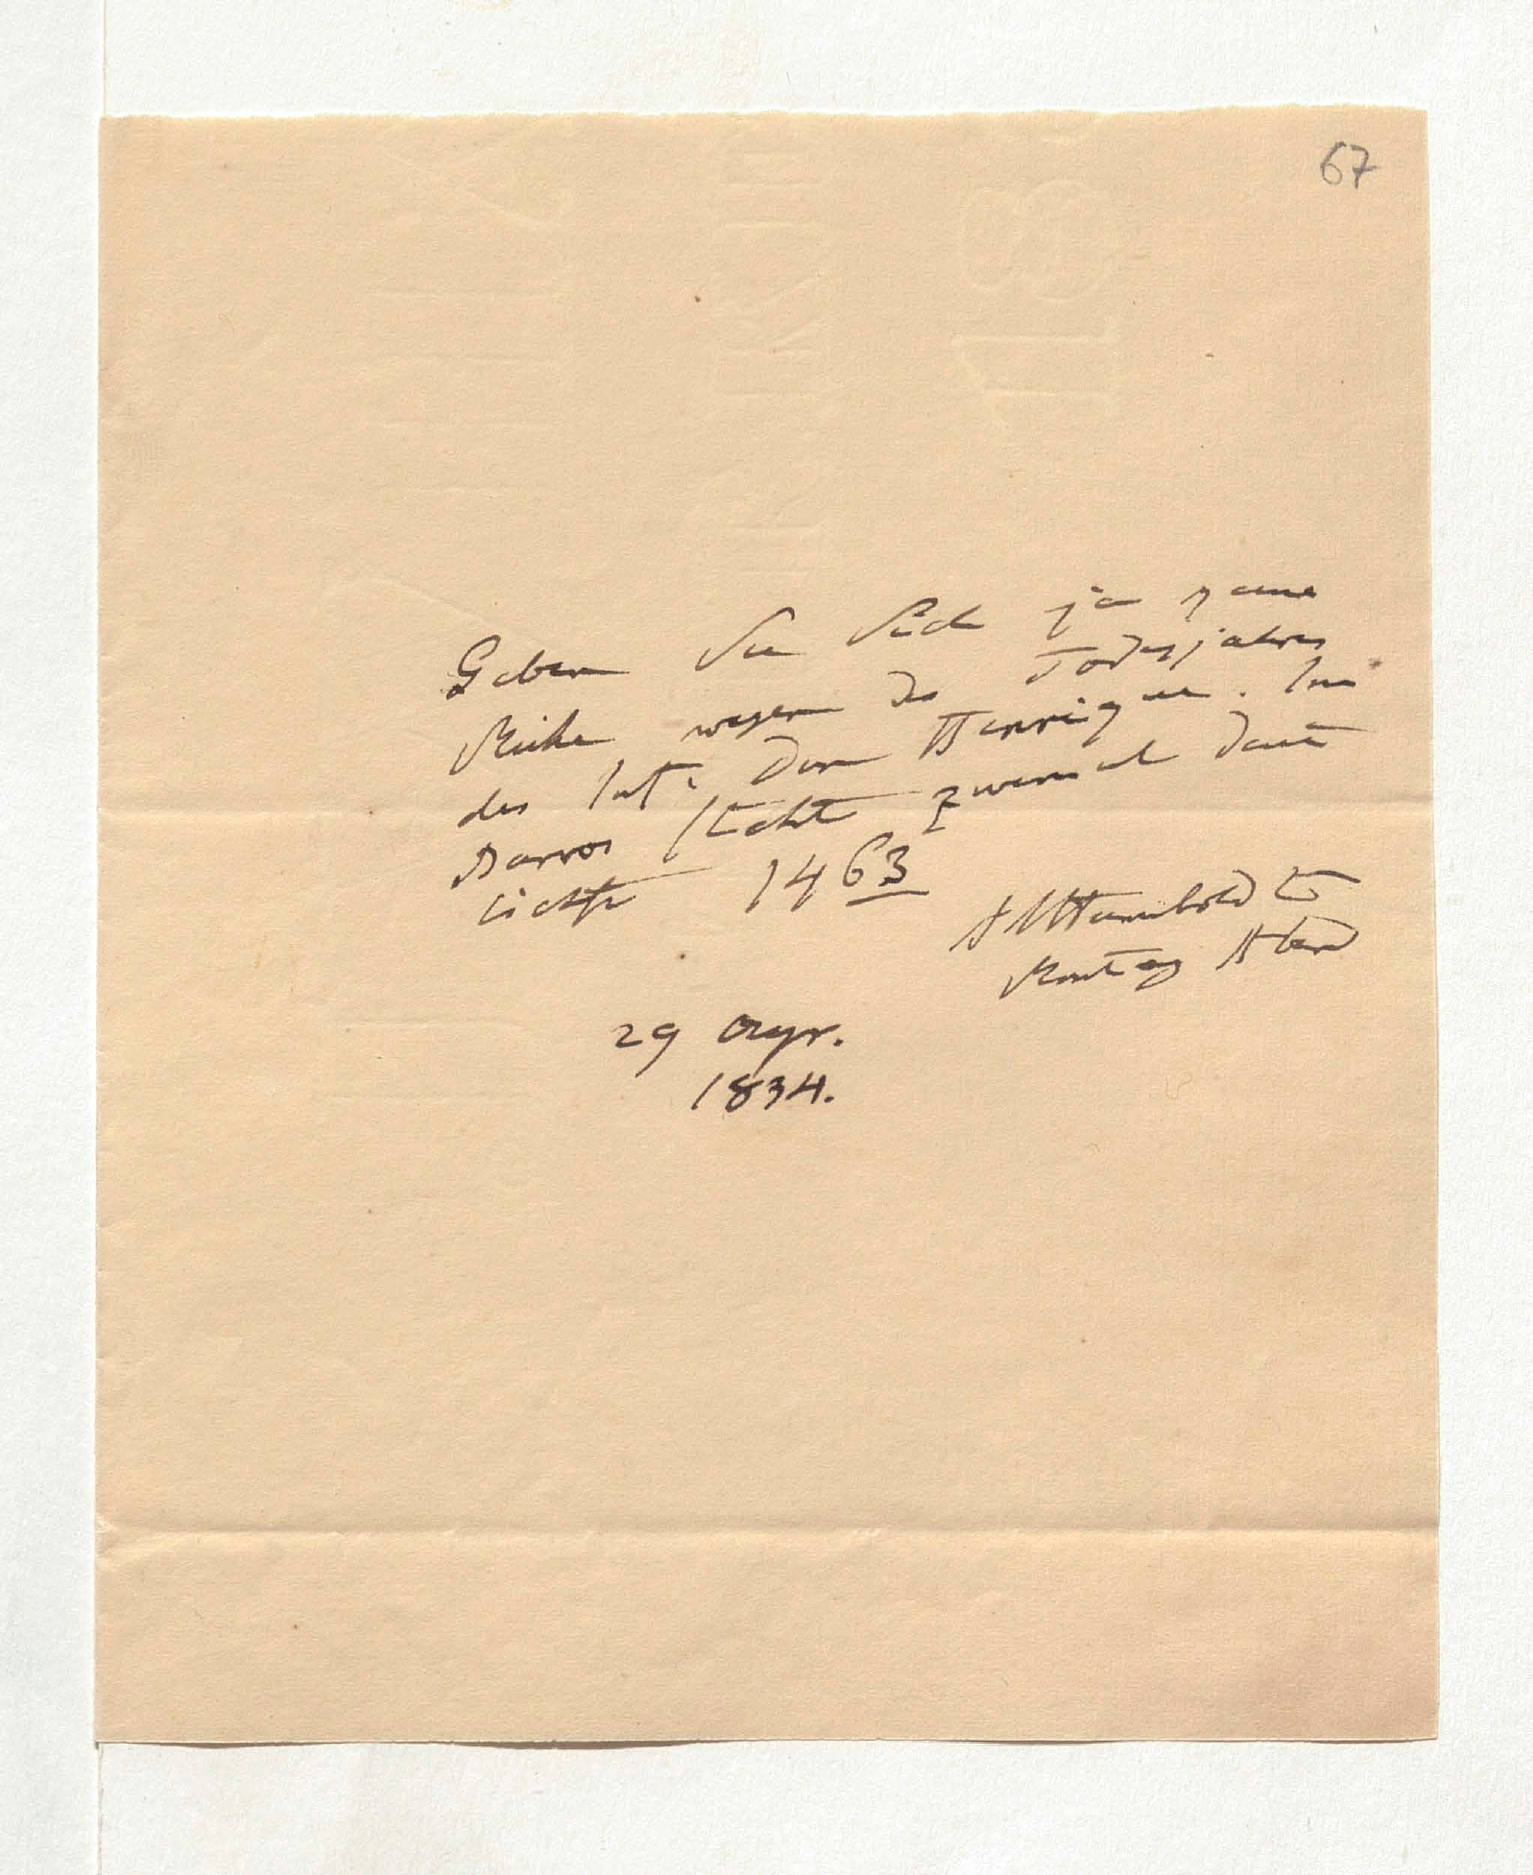 67
Geben Sie Sich ja keine
Mühe wegen des Todesjahres
des Inf. Dom Henrique. Im
Barros steht zweimal deut
lichst 1463
AHumboldt
Montag Abend
29 Apr.
1834.